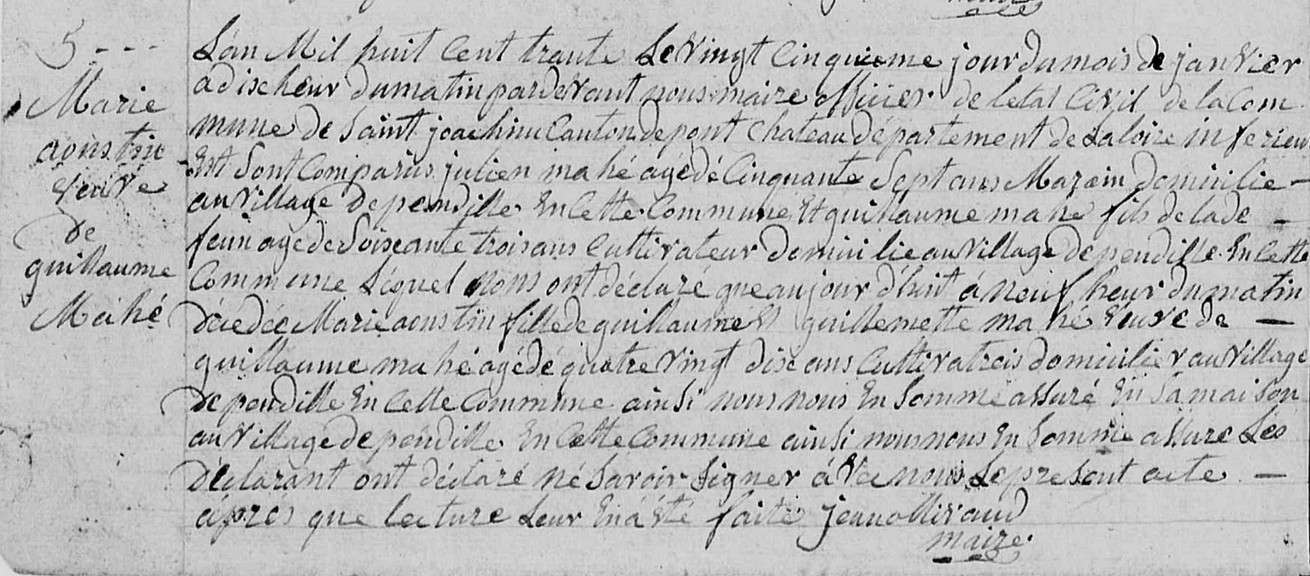 maire
5 - - -
Marie
aoustin
veuve
de
guillaume
Mahé
Lan Mil huit Cent trante Le vingt Cinquieme jour du mois de janvier
a dix heur du matin par devant nous maire officier de letat Civil de la Com
mune de Saint joachim Canton de pont Chateau département de La loire inferieur
Est Sont Comparus julien mahé agé dé Cinquante Sept ans Marein domicilie —
au village de pendille En Cette Commune Et guillaume mahe fils de la de —
feun age de Soiseante trois ans Cultivateur domicilie au village de pendille En Cette
Commune Lequel nous ont déclaré que aujour d'huit á neuf heur du matin
décédée Marie aoustin fille de guillaume Et guillemette mahé veuve de —
guillaume mahé agé dé quatre vingt dix ans Cultivatreis domicilier au village
de pendille En Cette Commune ainsi nous nous En Somme assuré En Sa maison
au village de pendille En Cette Commune ainsi nous nous En Somme assure Les
Déclarant ont déclaré né Savoir Signer á vec nous Le present acte —
ápres que lecture Leur En á été faite jean olliraud
maire